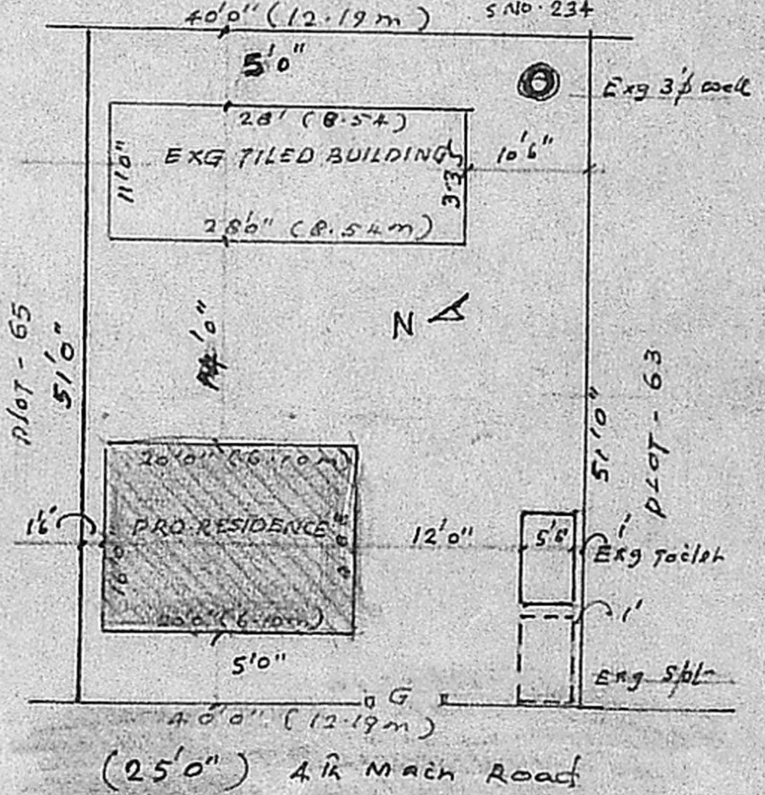 40'0" (12.19 m)
S NO. 234
5'0"
Exg 3'ϕ well
28' (8.54)
EXG TILED BUILDING
10'6"
11'0"
28'0" (8.54m)
N
PLOT - 65
51'0"
51'0"
PLOT - 63
20'0" (6.10m)
1'6"
PRO. RESIDENCE
12'0"
5'6"
1'
Exg Toilet
20'0" (6.10m)
1'
5'0"
Exg S/pt
G
40'0" (12.19m)
(25'0") 4th Main Road